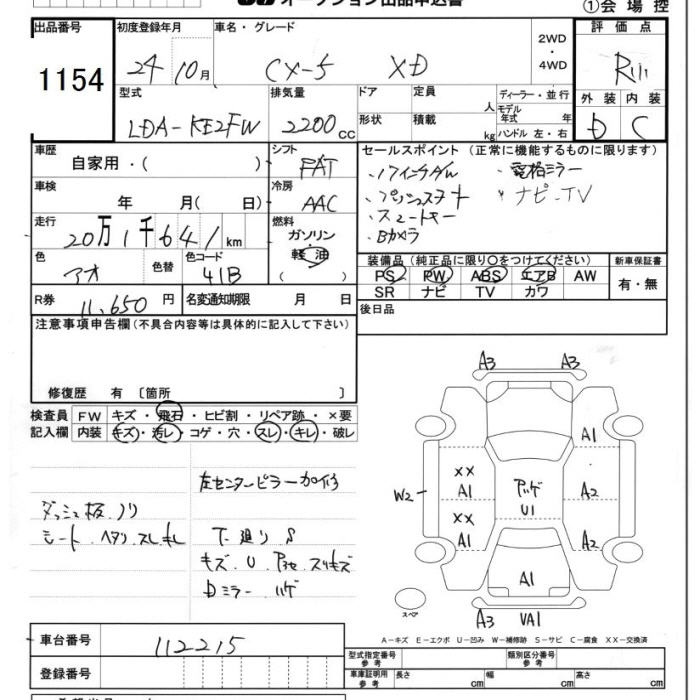 オークション出品申込書
①会場控
出品番号 初度登録年月 車名・グレード 2WD・4WD 評価点
1154 24 10月 CX-5 XD
外装 内装
D C
型式 排気量 ドア 定員 人 ディーラー・並行
LDA-KE2FW 2200cc 形状 積載 kg モデル年式 年 ハンドル 左・右
車歴 シフト セールスポイント (正常に機能するものに限ります)
自家用・( ) FAT
車検 冷房
年 月( 日) AAC
・プッシュスタート ・ナビ-TV
・スマートキー
・Bカメラ
走行 燃料
20万1千641km ガソリン 軽油 ( )
色 色替 色コード
アオ 41B
装備品 (純正品に限り○をつけてください) 新車保証書
PS PW ABS エアB AW 有・無
SR ナビ TV カワ
R券 11,650円 名変通知期限 月 日
後日品
注意事項申告欄 (不具合内容等は具体的に記入して下さい)
修復歴 有 [箇所 ]
検査員 FW キズ・飛石・ヒビ割・リペア跡・×要
記入欄 内装 キズ・汚レ・コゲ・穴・スレ・キレ・破レ
左センターピラー加修
ダッシュ板.ノリ
シート.ヘタリ.スレ.キレ
下廻りS
キズ.U.アセ.スリキズ
Dミラー.ハゲ
A3 A3
A1
XX A1 A2
W2
XX A1 A2
ハゲ U1
A1
スペア
A3 VA1
A-キズ E-エクボ U-凹み W-補修跡 S-サビ C-腐食 XX-交換済
車台番号 112215
登録番号
型式指定番号 参考 類別区分番号 参考
車庫証明用 参考 長さ cm 幅 cm 高さ cm